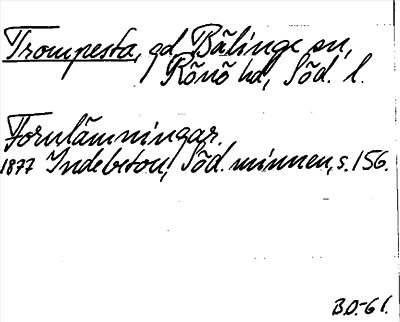 Trompesta, gd, Bälinge sn,
Rönö hd, Söd. l.
Fornlämningar.
1877 Indebetou, Söd. minnen, s. 156.
B.D.-61.